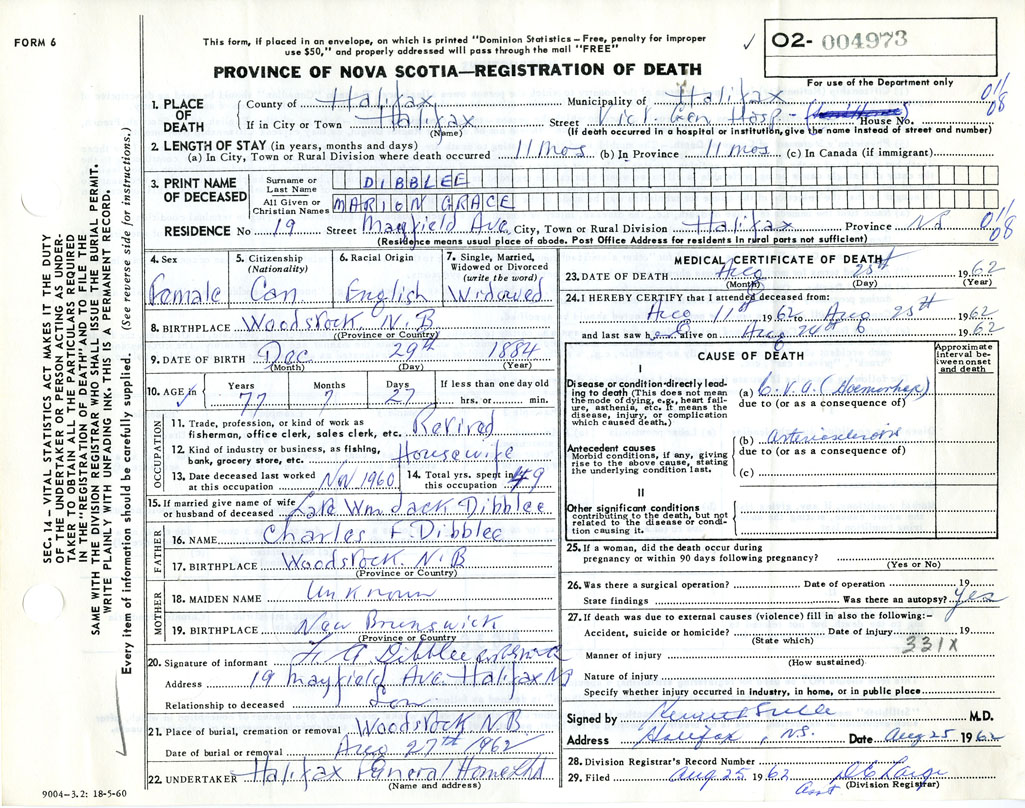 FORM 6
This form, if placed in an envelope, on which is printed "Dominion Statistics – Free, penalty for improper
use $50," and properly addressed will pass through the mail "FREE"
✓ 02- 004973
PROVINCE OF NOVA SCOTIA—REGISTRATION OF DEATH
For use of the Department only
1. PLACE OF DEATH
County of Halifax Municipality of Halifax 011/08
If in City or Town Halifax Street Vict. Gen Hosp - House No.
(Name) (If death occurred in a hospital or institution, give the name instead of street and number)
2. LENGTH OF STAY (in years, months and days)
(a) In City, Town or Rural Division where death occurred 11 mos (b) In Province 11 mos (c) In Canada (if immigrant)
3. PRINT NAME OF DECEASED
Surname or Last Name DIBBLEE
All Given or Christian Names MARION GRACE
RESIDENCE No 19 Street Mayfield Ave. City, Town or Rural Division Halifax Province NS 011/08
(Residence means usual place of abode. Post Office Address for residents in rural parts not sufficient)
4. Sex
Female
5. Citizenship
(Nationality)
Can
6. Racial Origin
English
7. Single, Married,
Widowed or Divorced
(write the word)
Widowed
8. BIRTHPLACE Woodstock, N.B
(Province or Country)
9. DATE OF BIRTH Dec. 29th 1884
(Month) (Day) (Year)
10. AGE in ✓
Years Months Days If less than one day old
77 7 27 hrs. or min.
OCCUPATION
11. Trade, profession, or kind of work as
fisherman, office clerk, sales clerk, etc. Retired
12. Kind of industry or business, as fishing,
bank, grocery store, etc. Housewife
13. Date deceased last worked
at this occupation Nov 1960
14. Total yrs. spent in
this occupation 49
15. If married give name of wife
or husband of deceased Late Wm Jack Dibblee
FATHER
16. NAME Charles F. Dibblee
17. BIRTHPLACE Woodstock. N.B
(Province or Country)
MOTHER
18. MAIDEN NAME Unknown
19. BIRTHPLACE New Brunswick
(Province or Country)
20. Signature of informant F. A Dibblee
Address 19 Mayfield Ave. Halifax NS
Relationship to deceased Son
21. Place of burial, cremation or removal Woodstock N.B.
Date of burial or removal Aug 27th 1962
22. UNDERTAKER Halifax Funeral Home Ltd
(Name and address)
9004-3.2: 18-5-60
MEDICAL CERTIFICATE OF DEATH
23. DATE OF DEATH Aug 25th 1962
(Month) (Day) (Year)
24. I HEREBY CERTIFY that I attended deceased from:
Aug 11th 1962 to Aug 25th 1962
and last saw her alive on Aug 24th 1962
CAUSE OF DEATH
Approximate interval between onset and death
I
Disease or condition directly leading to death (This does not mean
the mode of dying, e.g., heart failure, asthenia, etc. It means the
disease, injury, or complication
which caused death.)
(a) C.V.A. (Haemorhage)
due to (or as a consequence of)
Antecedent causes
Morbid conditions, if any, giving
rise to the above cause, stating
the underlying condition last.
(b) Arteriosclerosis
due to (or as a consequence of)
(c)
II
Other significant conditions
contributing to the death, but not
related to the disease or condition causing it.
25. If a woman, did the death occur during
pregnancy or within 90 days following pregnancy?
(Yes or No)
26. Was there a surgical operation? Date of operation 19
State findings Was there an autopsy? Yes
27. If death was due to external causes (violence) fill in also the following:–
Accident, suicide or homicide? Date of injury 19
(State which) 331X
Manner of injury
(How sustained)
Nature of injury
Specify whether injury occurred in industry, in home, or in public place
Signed by M.D.
Address Halifax, NS. Date Aug 25 1962
28. Division Registrar's Record Number
29. Filed Aug 25 1962
Asst (Division Registrar)
SEC. 14 – VITAL STATISTICS ACT MAKES IT THE DUTY
OF THE UNDERTAKER OR PERSON ACTING AS UNDERTAKER TO OBTAIN ALL THE PARTICULARS REQUIRED
IN THE "REGISTRATION OF DEATH" AND TO FILE THE
SAME WITH THE DIVISION REGISTRAR WHO SHALL ISSUE THE BURIAL PERMIT.
WRITE PLAINLY WITH UNFADING INK. THIS IS A PERMANENT RECORD.
Every item of information should be carefully supplied. (See reverse side for instructions.)